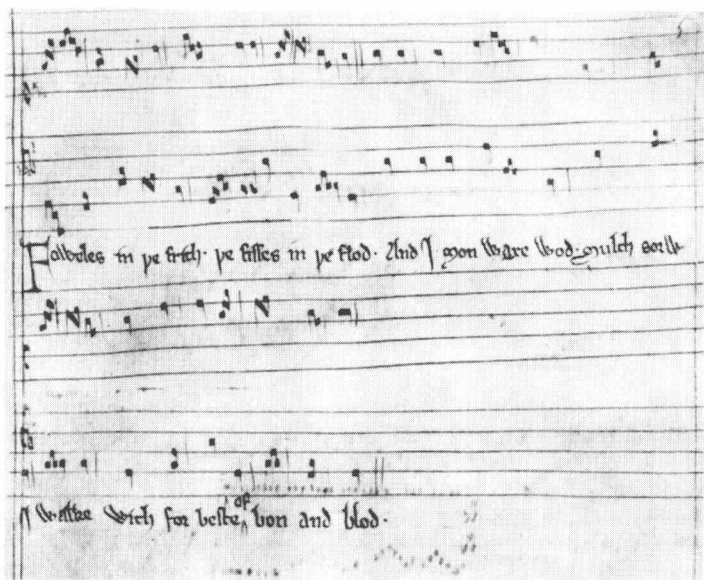 Foweles in þe frith · þe fisses in þe flod · And I mon waxe wod · mulch sorw
I walke with for beste of bon and blod ·